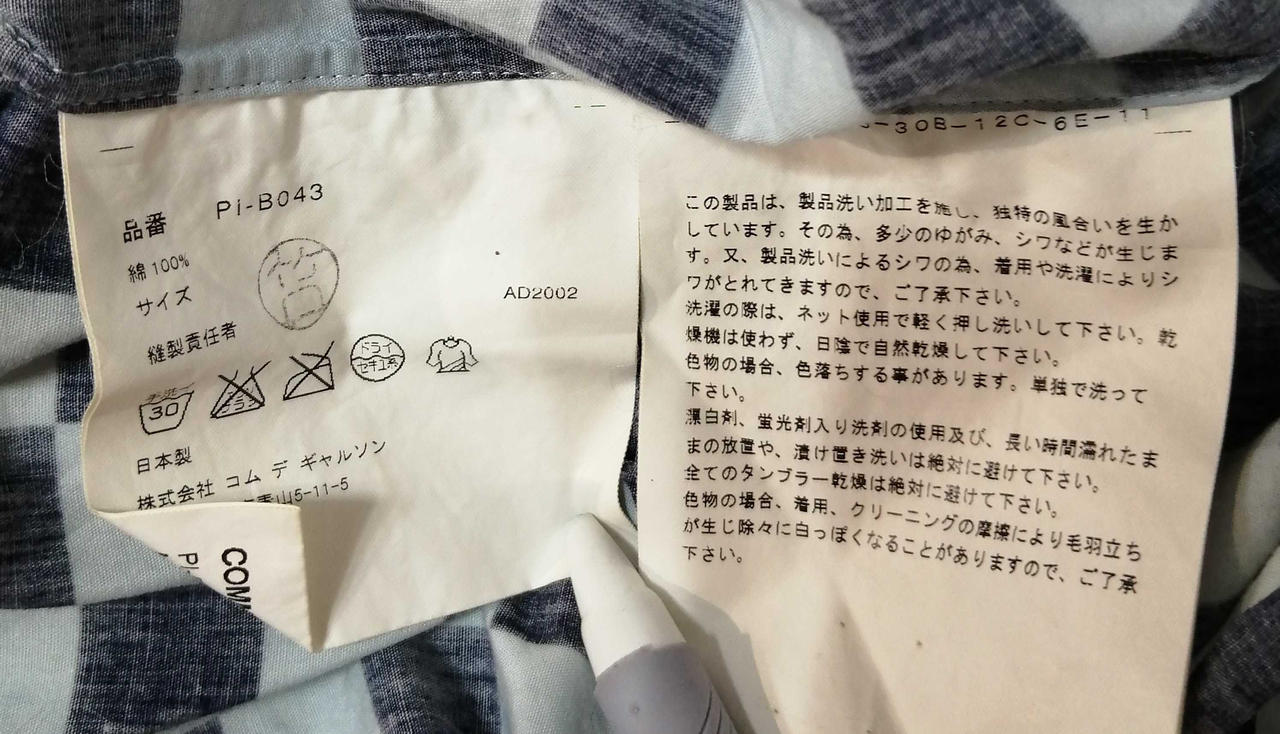 品番 Pi-B043
綿100%
サイズ
AD2002
縫製責任者
手洗イ
30
エンソサラシ
ドライ
セキユ系
日本製
株式会社 コム デ ギャルソン
青山5-11-5
COM
-30B-12C-6E-11
この製品は、製品洗い加工を施し、独特の風合いを生か
しています。その為、多少のゆがみ、シワなどが生じま
す。又、製品洗いによるシワの為、着用や洗濯によりシ
ワがとれてきますので、ご了承下さい。
洗濯の際は、ネット使用で軽く押し洗いして下さい。乾
燥機は使わず、日陰で自然乾燥して下さい。
色物の場合、色落ちする事があります。単独で洗って
下さい。
漂白剤、蛍光剤入り洗剤の使用及び、長い時間濡れたま
まの放置や、漬け置き洗いは絶対に避けて下さい。
全てのタンブラー乾燥は絶対に避けて下さい。
色物の場合、着用、クリーニングの摩擦により毛羽立ち
が生じ除々に白っぽくなることがありますので、ご了承
下さい。